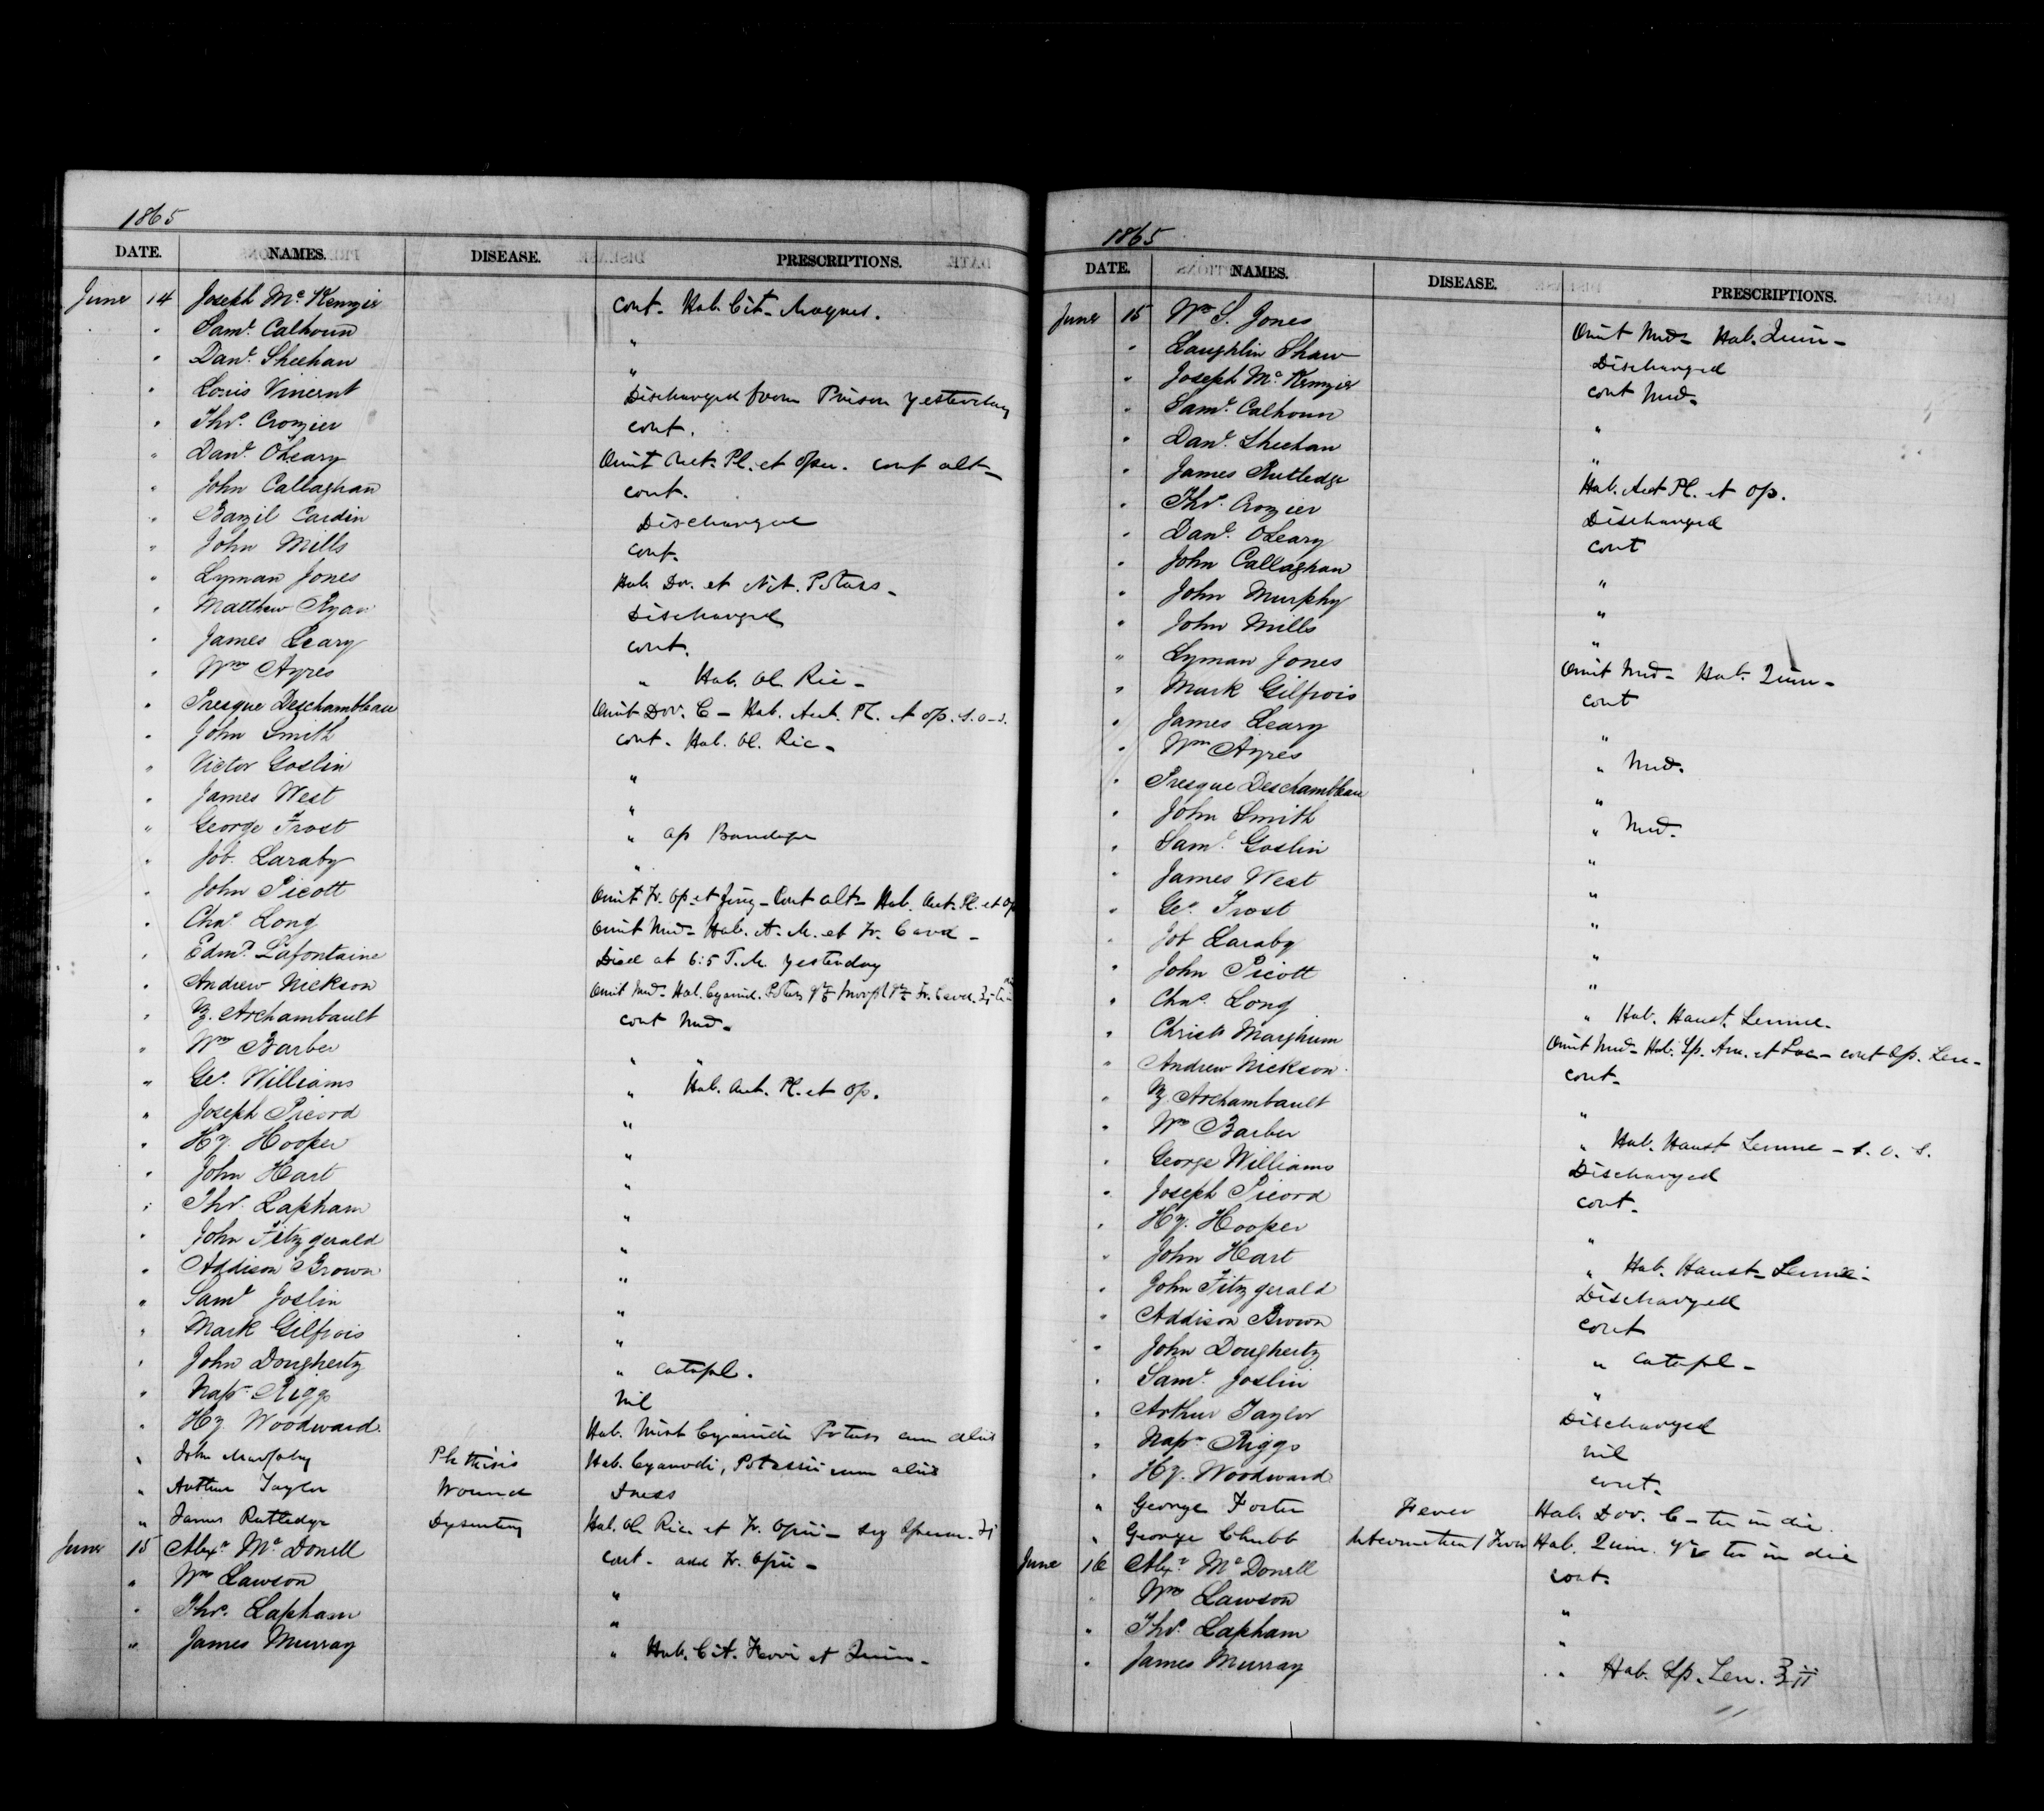 1865
DATE. NAMES. DISEASE. PRESCRIPTIONS.
June 14 Joseph McKenzie cont. Hab. Cit. Magnes.
" Saml. Calhoun "
" Danl. Sheehan "
" Louis Vincent Discharged from Prison yesterday
" Thos. Crozier cont.
" Danl. OLeary Omit Acet. Pl. et Open. cont alt-
" John Callaghan cont.
" Bazil Cardin Discharged
" John Mills cont.
" Lyman Jones Hab Dov. et Nit. Potass-
" Matthew Ryan Discharged
" James Leary cont.
" Wm Ayres " Hab. Ol. Ric-
" Presque Deschambleau Omit Dov. C- Hab. Acet. Pl. et op. s.o.s.
" John Smith cont. Hab. Ol. Ric-
" Victor Goslin "
" James West "
" George Frost " ap Bandage
" Job. Laraby "
" John Picott Omit Tr. Op. et Zing- Cont alt- Hab. Acet. Pl. et Op
" Chas Long Omit Med- Hab. A. M. et Tr. Card-
" Edmd. Lafontaine Died at 6:5 P.M. yesterday
" Andrew Nickson Omit Med- Hab. Cyanid. Potass
" Z. Archambault cont Med-
" Wm Barber " "
" Geo. Williams " Hab. Acet. Pl. et Op.
" Joseph Picord "
" Hy. Hooper "
" John Hart "
" Thos. Lapham "
" John Fitzgerald "
" Addison Brown "
" Saml Joslin "
" Mark Gilfrois "
" John Dougherty " Catapl.
" Napn. Riggs Nil
" Hy. Woodward. Hab. Mist Cyanidi Potass cum aliis
" John Murphy Phthisis Hab. Cyanodi, Potassii cum aliis
" Arthur Taylor Wound Dress
" James Rutledge Dysentery Hab. Ol. Ric. et Tr. Opii-
June 15 Alexr. McDonell cont- add Tr. Opii-
" Wm Lawson "
" Thos. Lapham "
" James Murray " Hab. Cit. Ferri et Quin-
1865
DATE. NAMES. DISEASE. PRESCRIPTIONS.
June 15 Wm S. Jones Omit Med- Hab. Quin-
" Laughlin Shaw Discharged
" Joseph McKenzie cont Med-
" Saml. Calhoun "
" Danl. Sheehan "
" James Rutledge Hab. Acet Pl. et Op.
" Thos. Crozier Discharged
" Danl. OLeary cont
" John Callaghan "
" John Murphy "
" John Mills "
" Lyman Jones Omit Med- Hab. Quin-
" Mark Gilfrois cont
" James Leary "
" Wm Ayres " Med.
" Presque Deschambleau "
" John Smith " Med.
" Saml Goslin "
" James West "
" Geo. Frost "
" Job Laraby "
" John Picott "
" Chas. Long " Hab. Haust. Senne-
" Christr Marghum Omit Med- Hab. Sp. Am. et Lav- cont Op. Len-
" Andrew Nickson. cont-
" Z. Archambault "
" Wm Barber " Hab. Haust Senne- s. o. s.
" George Williams Discharged
" Joseph Picord cont-
" Hy. Hooper "
" John Hart " Hab. Haust- Senne-
" John Fitzgerald Discharged
" Addison Brown cont
" John Dougherty " Catapl-
" Saml. Joslin "
" Arthur Taylor Discharged
" Napn Riggs Nil
" Hy. Woodward cont-
" George Foster Fever Hab. Dov. C- ter in die.
" George Chubb Intermittent Fever Hab. Quin. gr v ter in die
June 16 Alexr. McDonell cont.
" Wm Lawson "
" Thos. Lapham "
" James Murray " Hab. Sp. Len. ℥ii